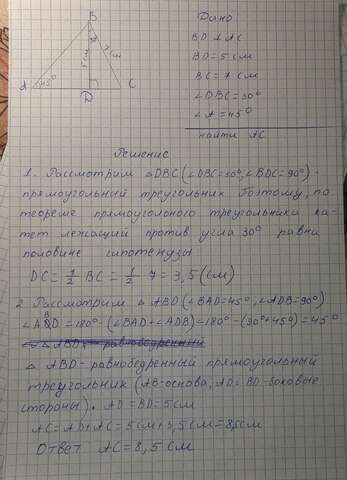 B
30°
7 см
5 см
A
45°
D
C
Дано
BD ⊥ AC
BD = 5 см
BC = 7 см
∠DBC = 30°
∠A = 45°
найти AC
Решение
1. Рассмотрим △DBC (∠DBC=30°, ∠BDC=90°) -
прямоугольный треугольник. Поэтому, по
теореме прямоуголоного треугольника ка-
тет лежащий против угла 30° равна
половине гипотенузы
DC = 1/2 BC = 1/2 · 7 = 3,5 (см)
2. Рассмотрим △ ABD (∠BAD=45°, ∠ADB=90°)
∠ABD = 180° - (∠BAD + ∠ADB) = 180° - (90° + 45°) = 45°
△ ABD - равнобедренный
△ ABD - равнобедренный прямоугольный
треугольник (AB-основа, AD и BD - боковые
стороны). AD = BD = 5 см
AC = AD + AC = 5 см + 3,5 см = 8,5 см
Ответ AC = 8,5 см